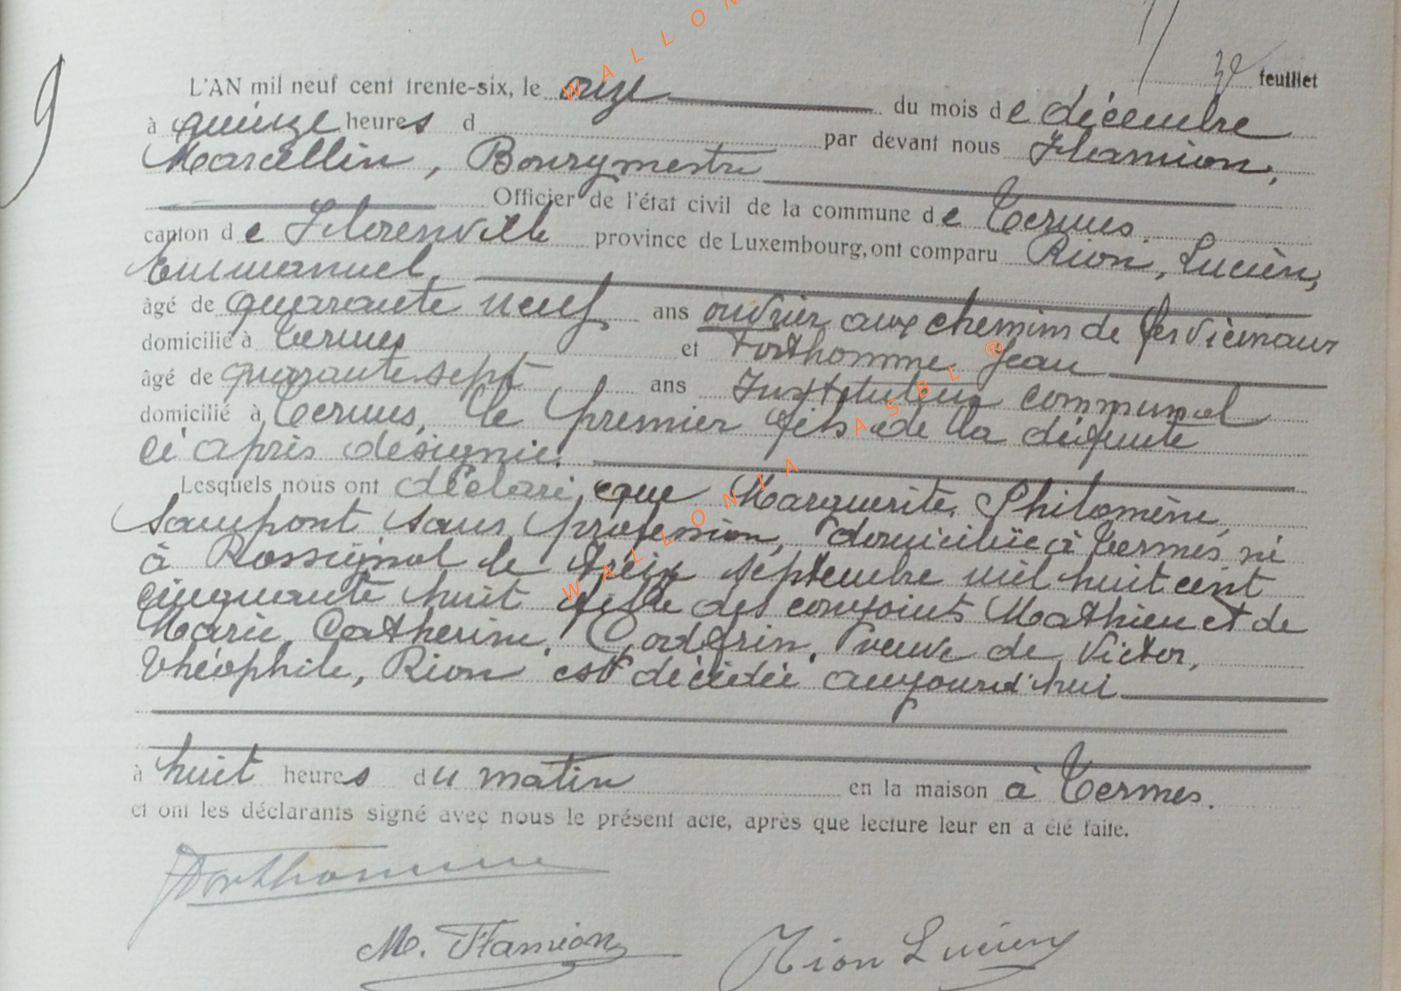 9
3e feuillet
L'AN mil neuf cent trente-six, le onze du mois de décembre
à quinze heures d par devant nous Flamion,
Marcellin, Bourgmestre
Officier de l'état civil de la commune de Termes.
canton de Florenville province de Luxembourg, ont comparu Rion, Lucien,
Emmanuel,
âgé de quarante neuf ans ouvrier aux chemins de fer vicinaux
domicilié à Termes et Forthomme Jean
âgé de quarante sept ans Instituteur communal
domicilié à Termes, le premier fils de la défunte
ci après désignée.
Lesquels nous ont déclaré, que Marguerite, Philomène,
Saupont sans profession, domiciliée à Termes, né
à Rossignol le treize septembre mil huit cent
cinquante huit fille des conjoints Mathieu et de
Marie, Catherine, veuve de Victor,
Théophile, Rion est décédée aujourd'hui
à huit heures du matin en la maison à Termes.
et ont les déclarants signé avec nous le présent acte, après que lecture leur en a été faite.
JForthomme
M. Flamion Rion Lucien
WALLON
WALLONIA ASBL ®